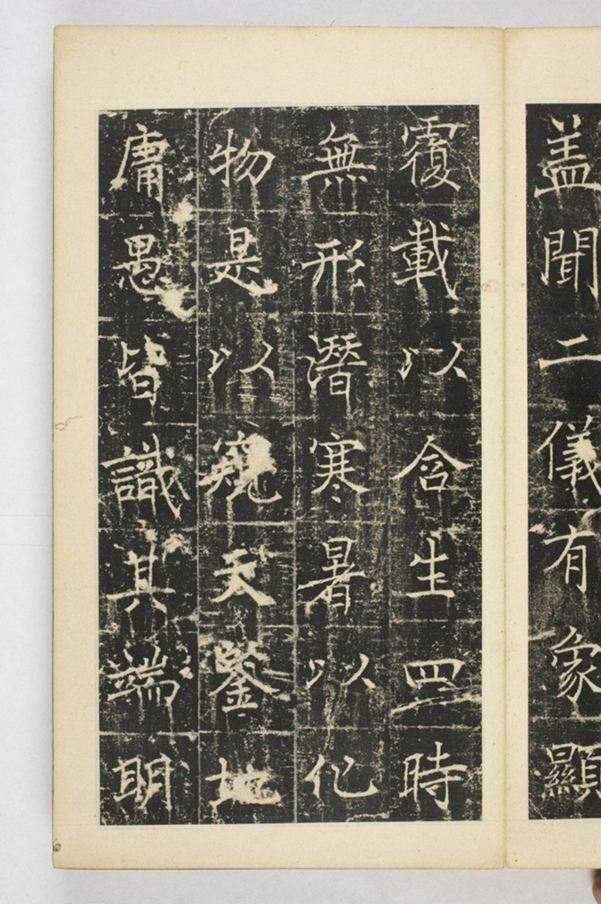 盖聞二儀有象顯
覆載以含生四時
無形潛寒暑以化
物是以窺天鑒地
庸愚皆識其端明